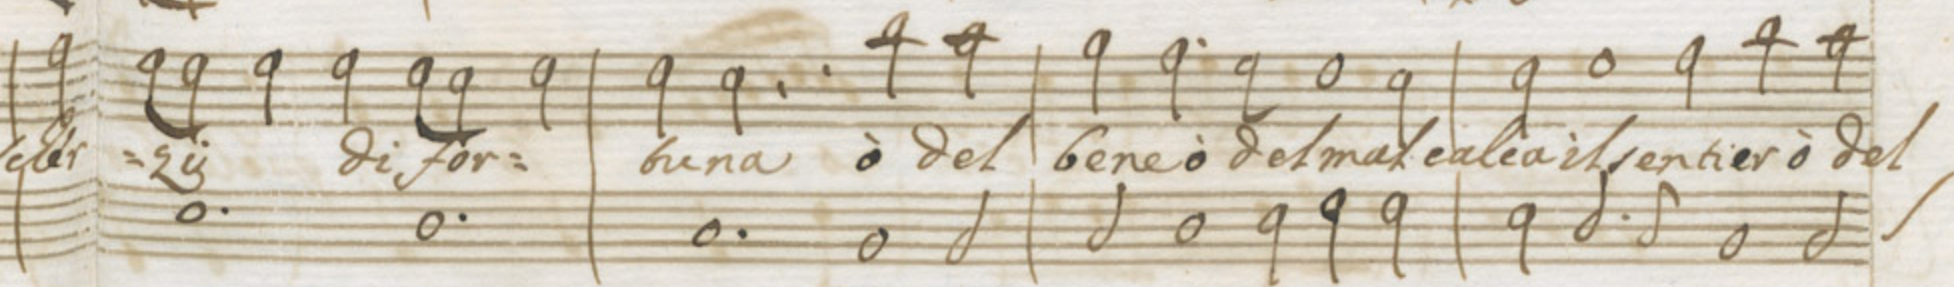 scher =zij di for= tuna ò del bene ò del mal e alca il sentier ò del